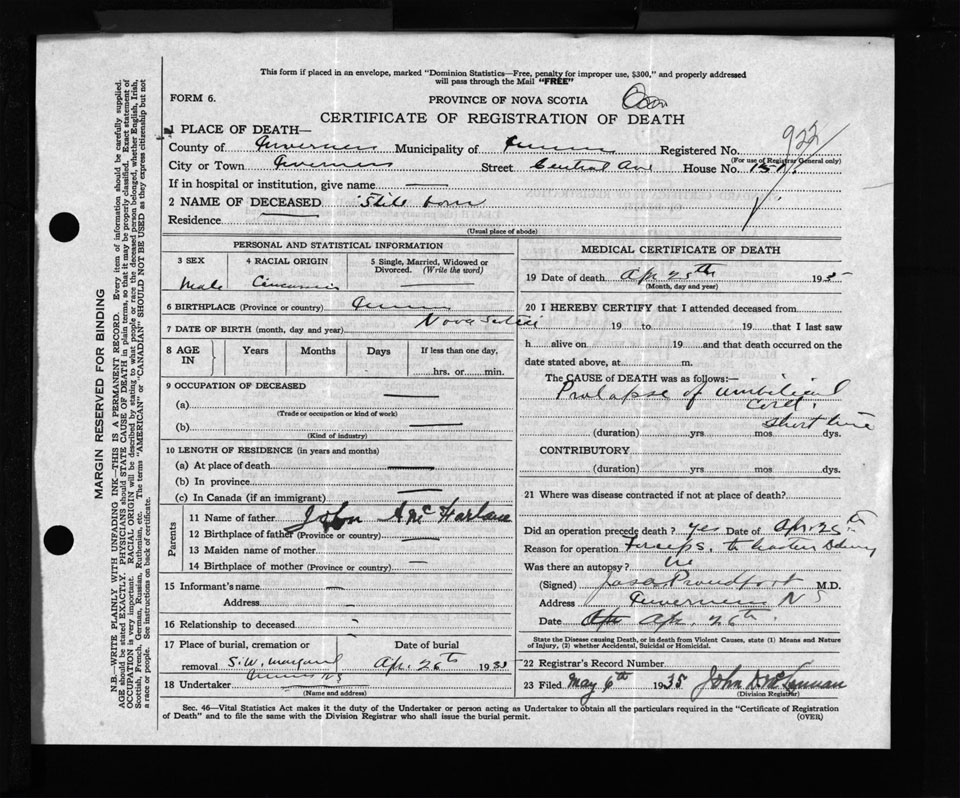 This form if placed in an envelope, marked "Dominion Statistics—Free, penalty for improper use, $300," and properly addressed
will pass through the Mail "FREE"
FORM 6.
PROVINCE OF NOVA SCOTIA
CERTIFICATE OF REGISTRATION OF DEATH
1 PLACE OF DEATH—
922
County of Inverness Municipality of Registered No.
(For use of Registrar General only)
City or Town Inverness Street Central Ave House No. 151
If in hospital or institution, give name —
2 NAME OF DECEASED Still born
Residence —
(Usual place of abode)
PERSONAL AND STATISTICAL INFORMATION
3 SEX 4 RACIAL ORIGIN 5 Single, Married, Widowed or Divorced. (Write the word)
Male —
6 BIRTHPLACE (Province or country)
Nova Scotia
7 DATE OF BIRTH (month, day and year)
8 AGE IN Years Months Days If less than one day,
hrs. or min.
9 OCCUPATION OF DECEASED
(a) —
(Trade or occupation or kind of work)
(b) —
(Kind of industry)
10 LENGTH OF RESIDENCE (in years and months)
(a) At place of death —
(b) In province
(c) In Canada (if an immigrant) —
Parents
11 Name of father John A McFarlane
12 Birthplace of father (Province or country) —
13 Maiden name of mother —
14 Birthplace of mother (Province or country) —
15 Informant's name —
Address —
16 Relationship to deceased
17 Place of burial, cremation or Date of burial
removal S.W. Margaree Apr. 26th 1935
18 Undertaker
(Name and address)
MEDICAL CERTIFICATE OF DEATH
19 Date of death Apr 25th 1935
(Month, day and year)
20 I HEREBY CERTIFY that I attended deceased from
19 to 19 that I last saw
h alive on 19 and that death occurred on the
date stated above, at m.
The CAUSE of DEATH was as follows:—
Prolapse of umbilical
Cord.
Short time
(duration) yrs mos dys.
CONTRIBUTORY
(duration) yrs mos dys.
21 Where was disease contracted if not at place of death?
Did an operation precede death? yes Date of Apr. 25th
Reason for operation Forceps, to hasten delivery
Was there an autopsy? No
(Signed) Jas A Proudfoot M.D.
Address Inverness N S
Date Apr. 26th.
State the Disease causing Death, or in death from Violent Causes, state (1) Means and Nature
of Injury, (2) whether Accidental, Suicidal or Homicidal.
22 Registrar's Record Number
23 Filed May 6th 1935 John D McLennan
(Division Registrar)
Sec. 46—Vital Statistics Act makes it the duty of the Undertaker or person acting as Undertaker to obtain all the particulars required in the "Certificate of Registration
of Death" and to file the same with the Division Registrar who shall issue the burial permit.
(OVER)
MARGIN RESERVED FOR BINDING
N.B.—WRITE PLAINLY WITH UNFADING INK—THIS IS A PERMANENT RECORD. Every item of information should be carefully supplied.
AGE should be stated EXACTLY. PHYSICIANS should STATE CAUSE OF DEATH in plain terms, so that it may be properly classified. Exact statement of
OCCUPATION is very important. RACIAL ORIGIN will be described by stating to what people or race the deceased person belonged, whether English, Irish,
Scottish, French, German, Russian, Ruthenian, etc. The terms "AMERICAN" or "CANADIAN" SHOULD NOT BE USED as they express citizenship but not
a race or people. See instructions on back of certificate.